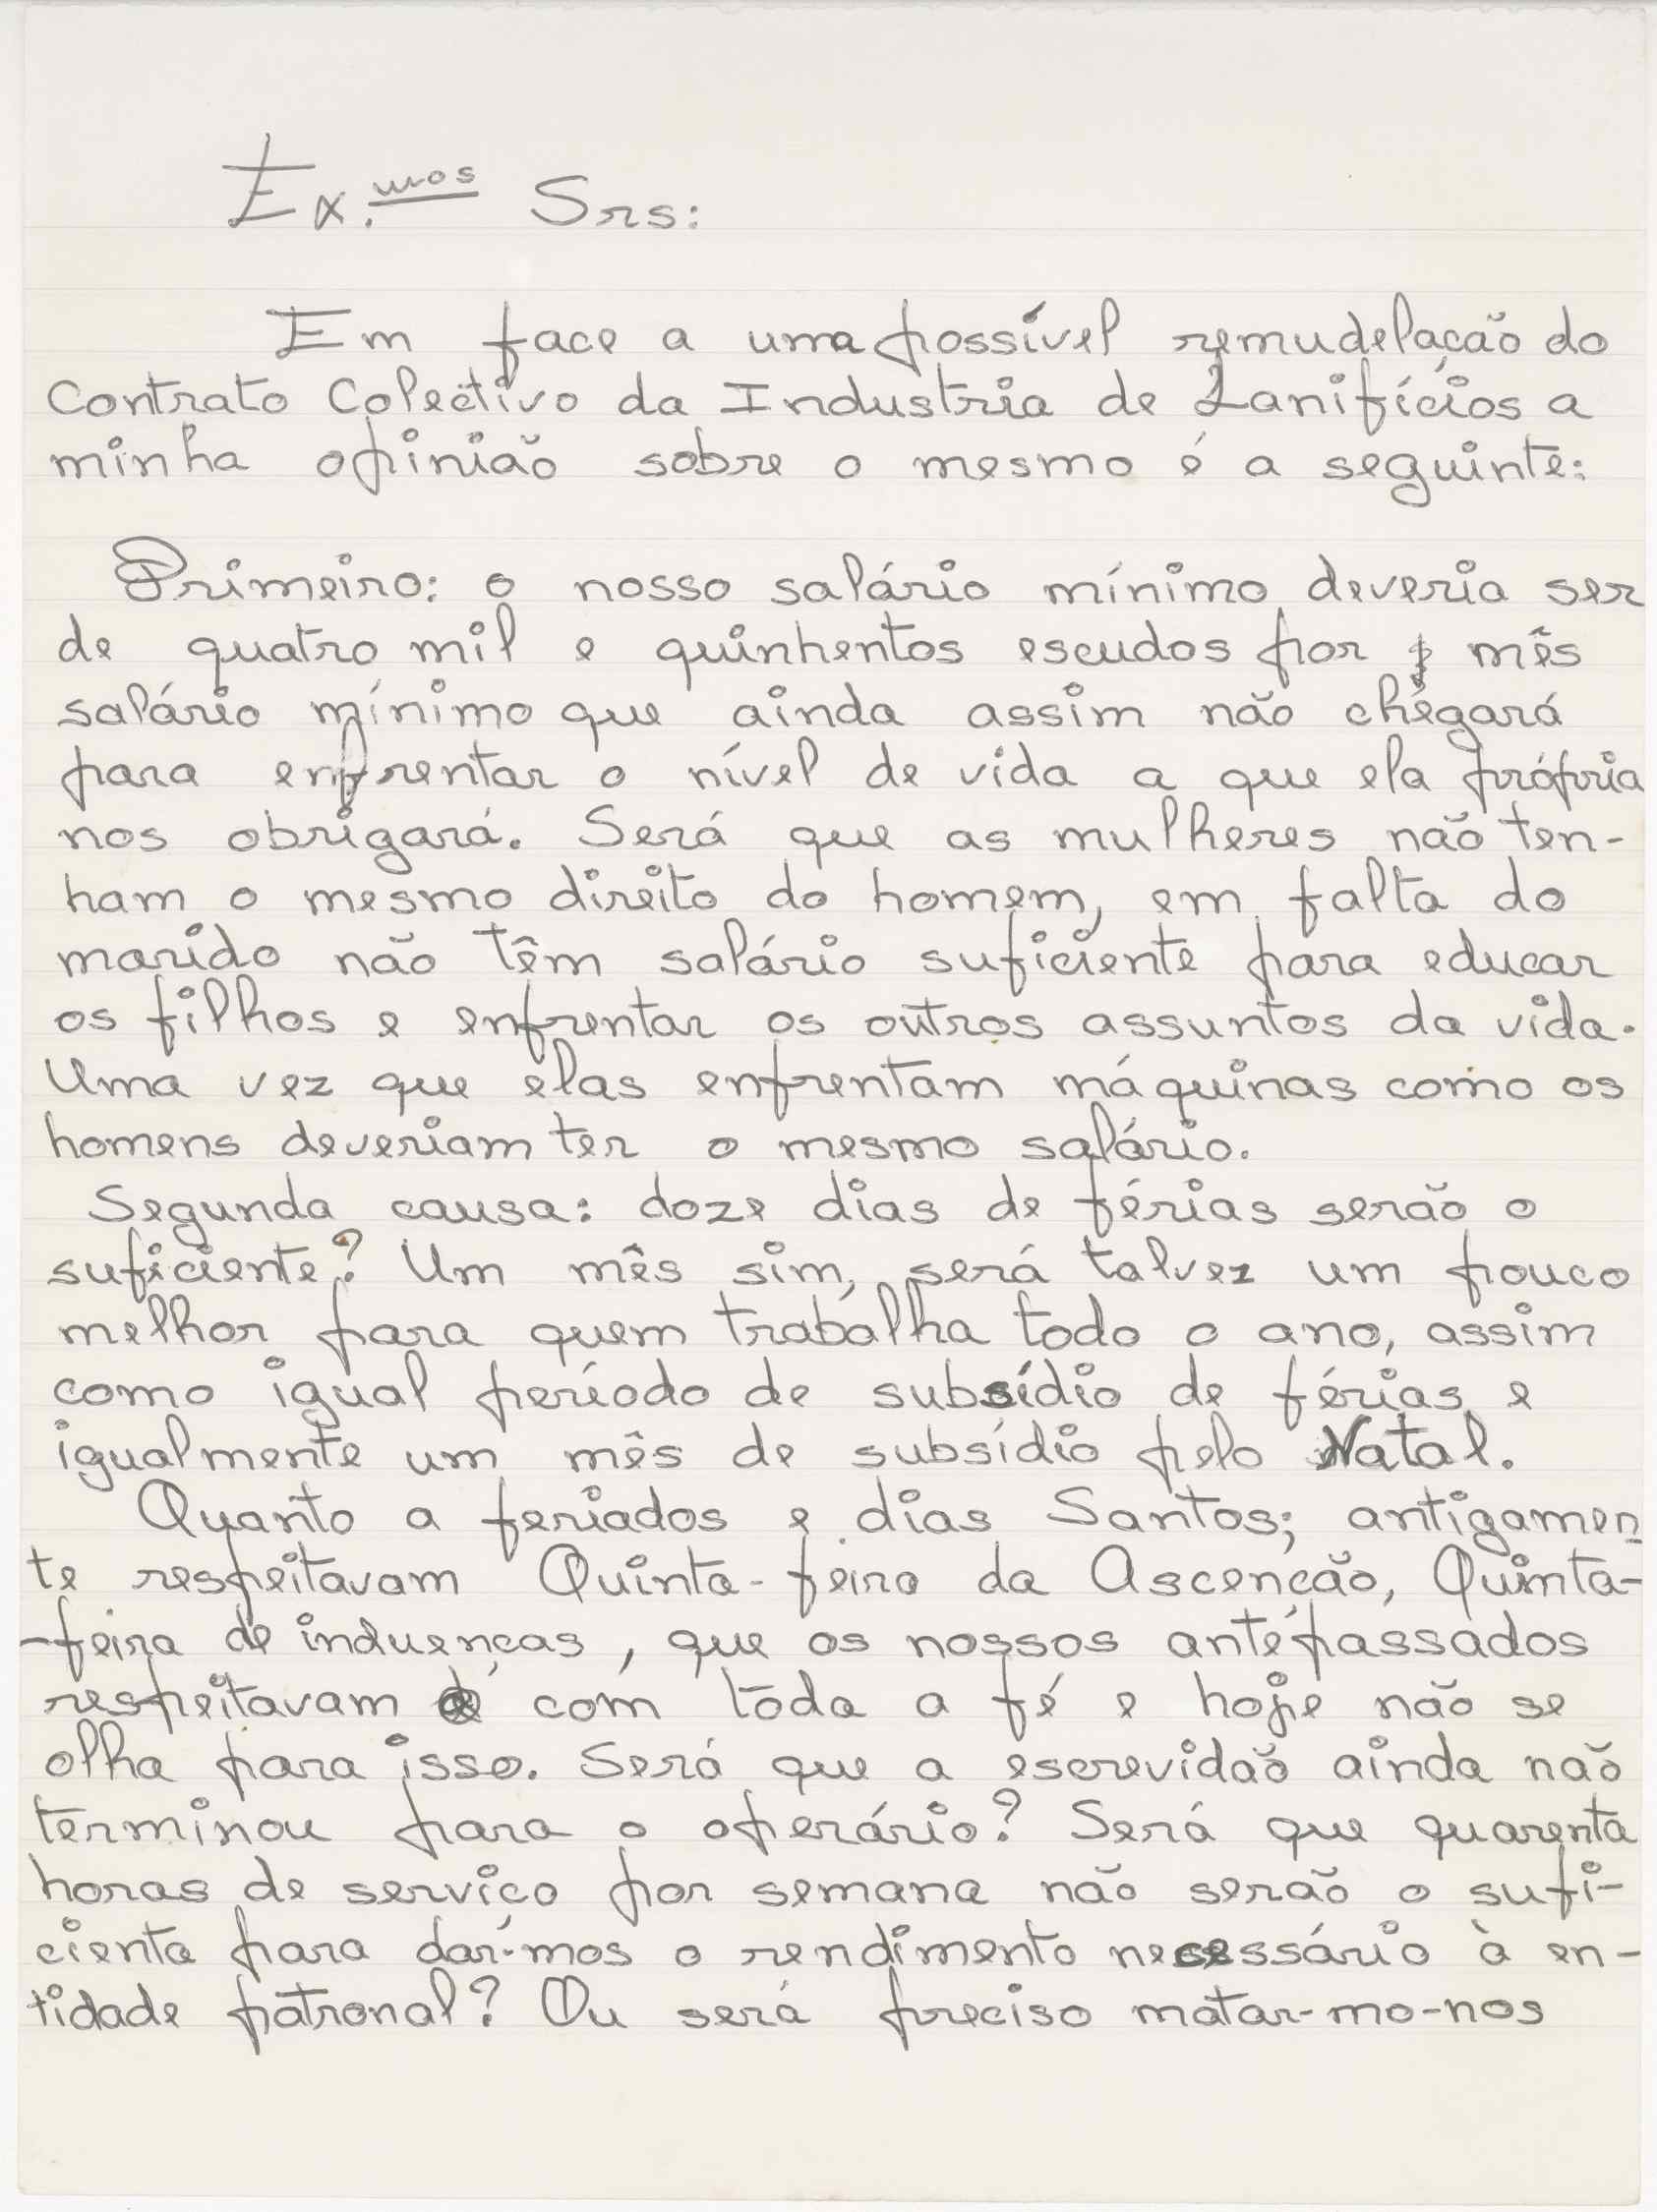 Ex.mos Srs:
Em face a uma possível remudelação do
Contrato Colectivo da Industria de Lanifícios a
minha opinião sobre o mesmo é a seguinte:
Primeiro: o nosso salário mínimo deveria ser
de quatro mil e quinhentos escudos por mês
salário mínimo que ainda assim não chegará
para enfrentar o nível de vida a que ela própria
nos obrigará. Será que as mulheres não ten-
ham o mesmo direito do homem, em falta do
marido não têm salário suficiente para educar
os filhos e enfrentar os outros assuntos da vida.
Uma vez que elas enfrentam máquinas como os
homens deveriam ter o mesmo salário.
Segunda causa: doze dias de férias serão o
suficiente? Um mês sim, será talvez um pouco
melhor para quem trabalha todo o ano, assim
como igual período de subsídio de férias e
igualmente um mês de subsídio pelo Natal.
Quanto a feriados e dias Santos; antigamen
te respeitavam Quinta-feira da Ascenção, Quinta-
-feira de induenças, que os nossos antépassados
respeitavam com toda a fé e hoje não se
olha para isso. Será que a escrevidão ainda não
terminou para o operário? Será que quarenta
horas de serviço por semana não serão o sufi-
ciente para dar-mos o rendimento necessário à en-
tidade patronal? Ou será preciso matar-mo-nos